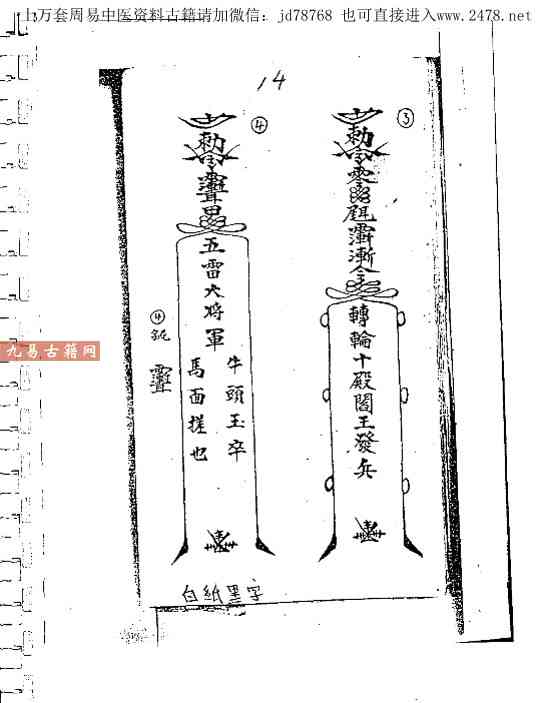 上万套周易中医资料古籍请加微信：jd78768 也可直接进入www.2478.net
14
③
勅令
轉輪十殿閻王發兵
④
勅令
五雷大将軍
牛頭玉卒
馬面搓也
④
九易古籍网
白紙黑字